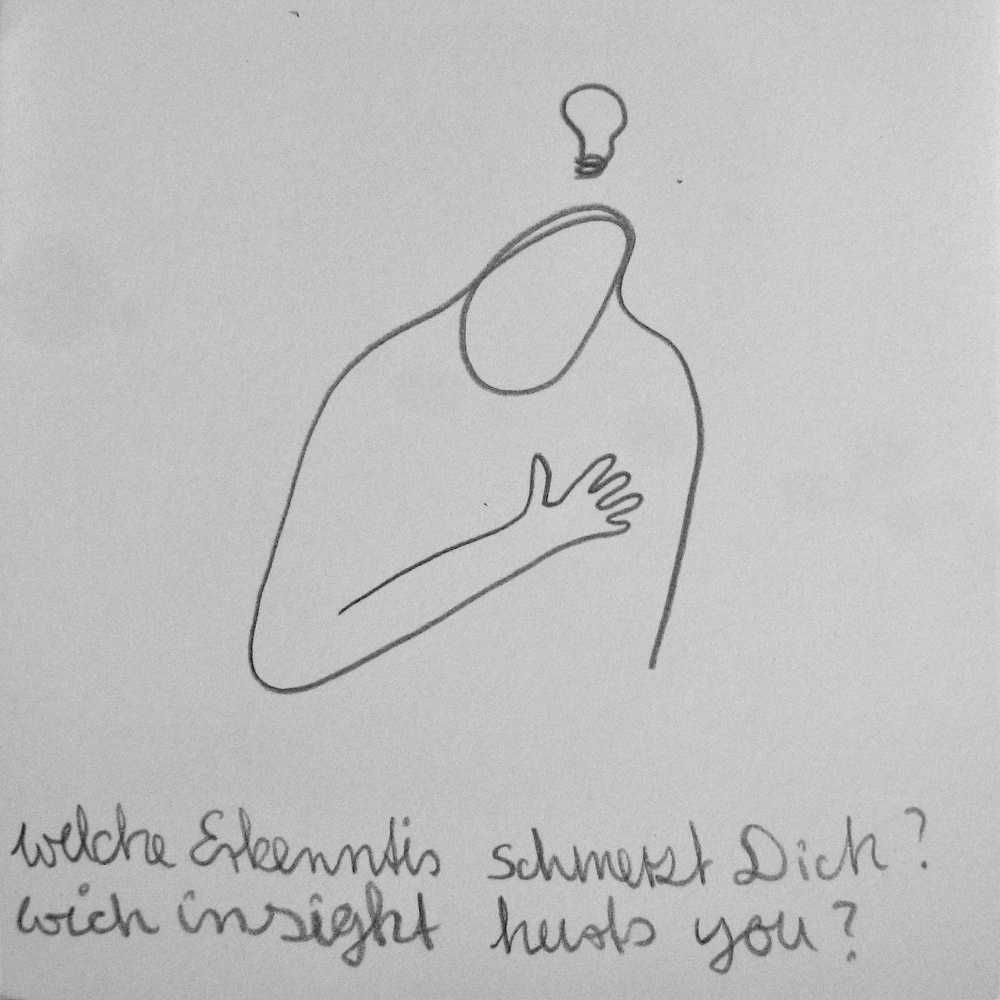 welche Erkenntis schmerzt Dich?
wich insight hurts you?